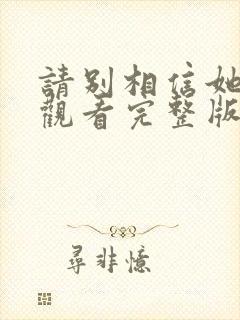 請別相信她
觀看完整版
尋非憶